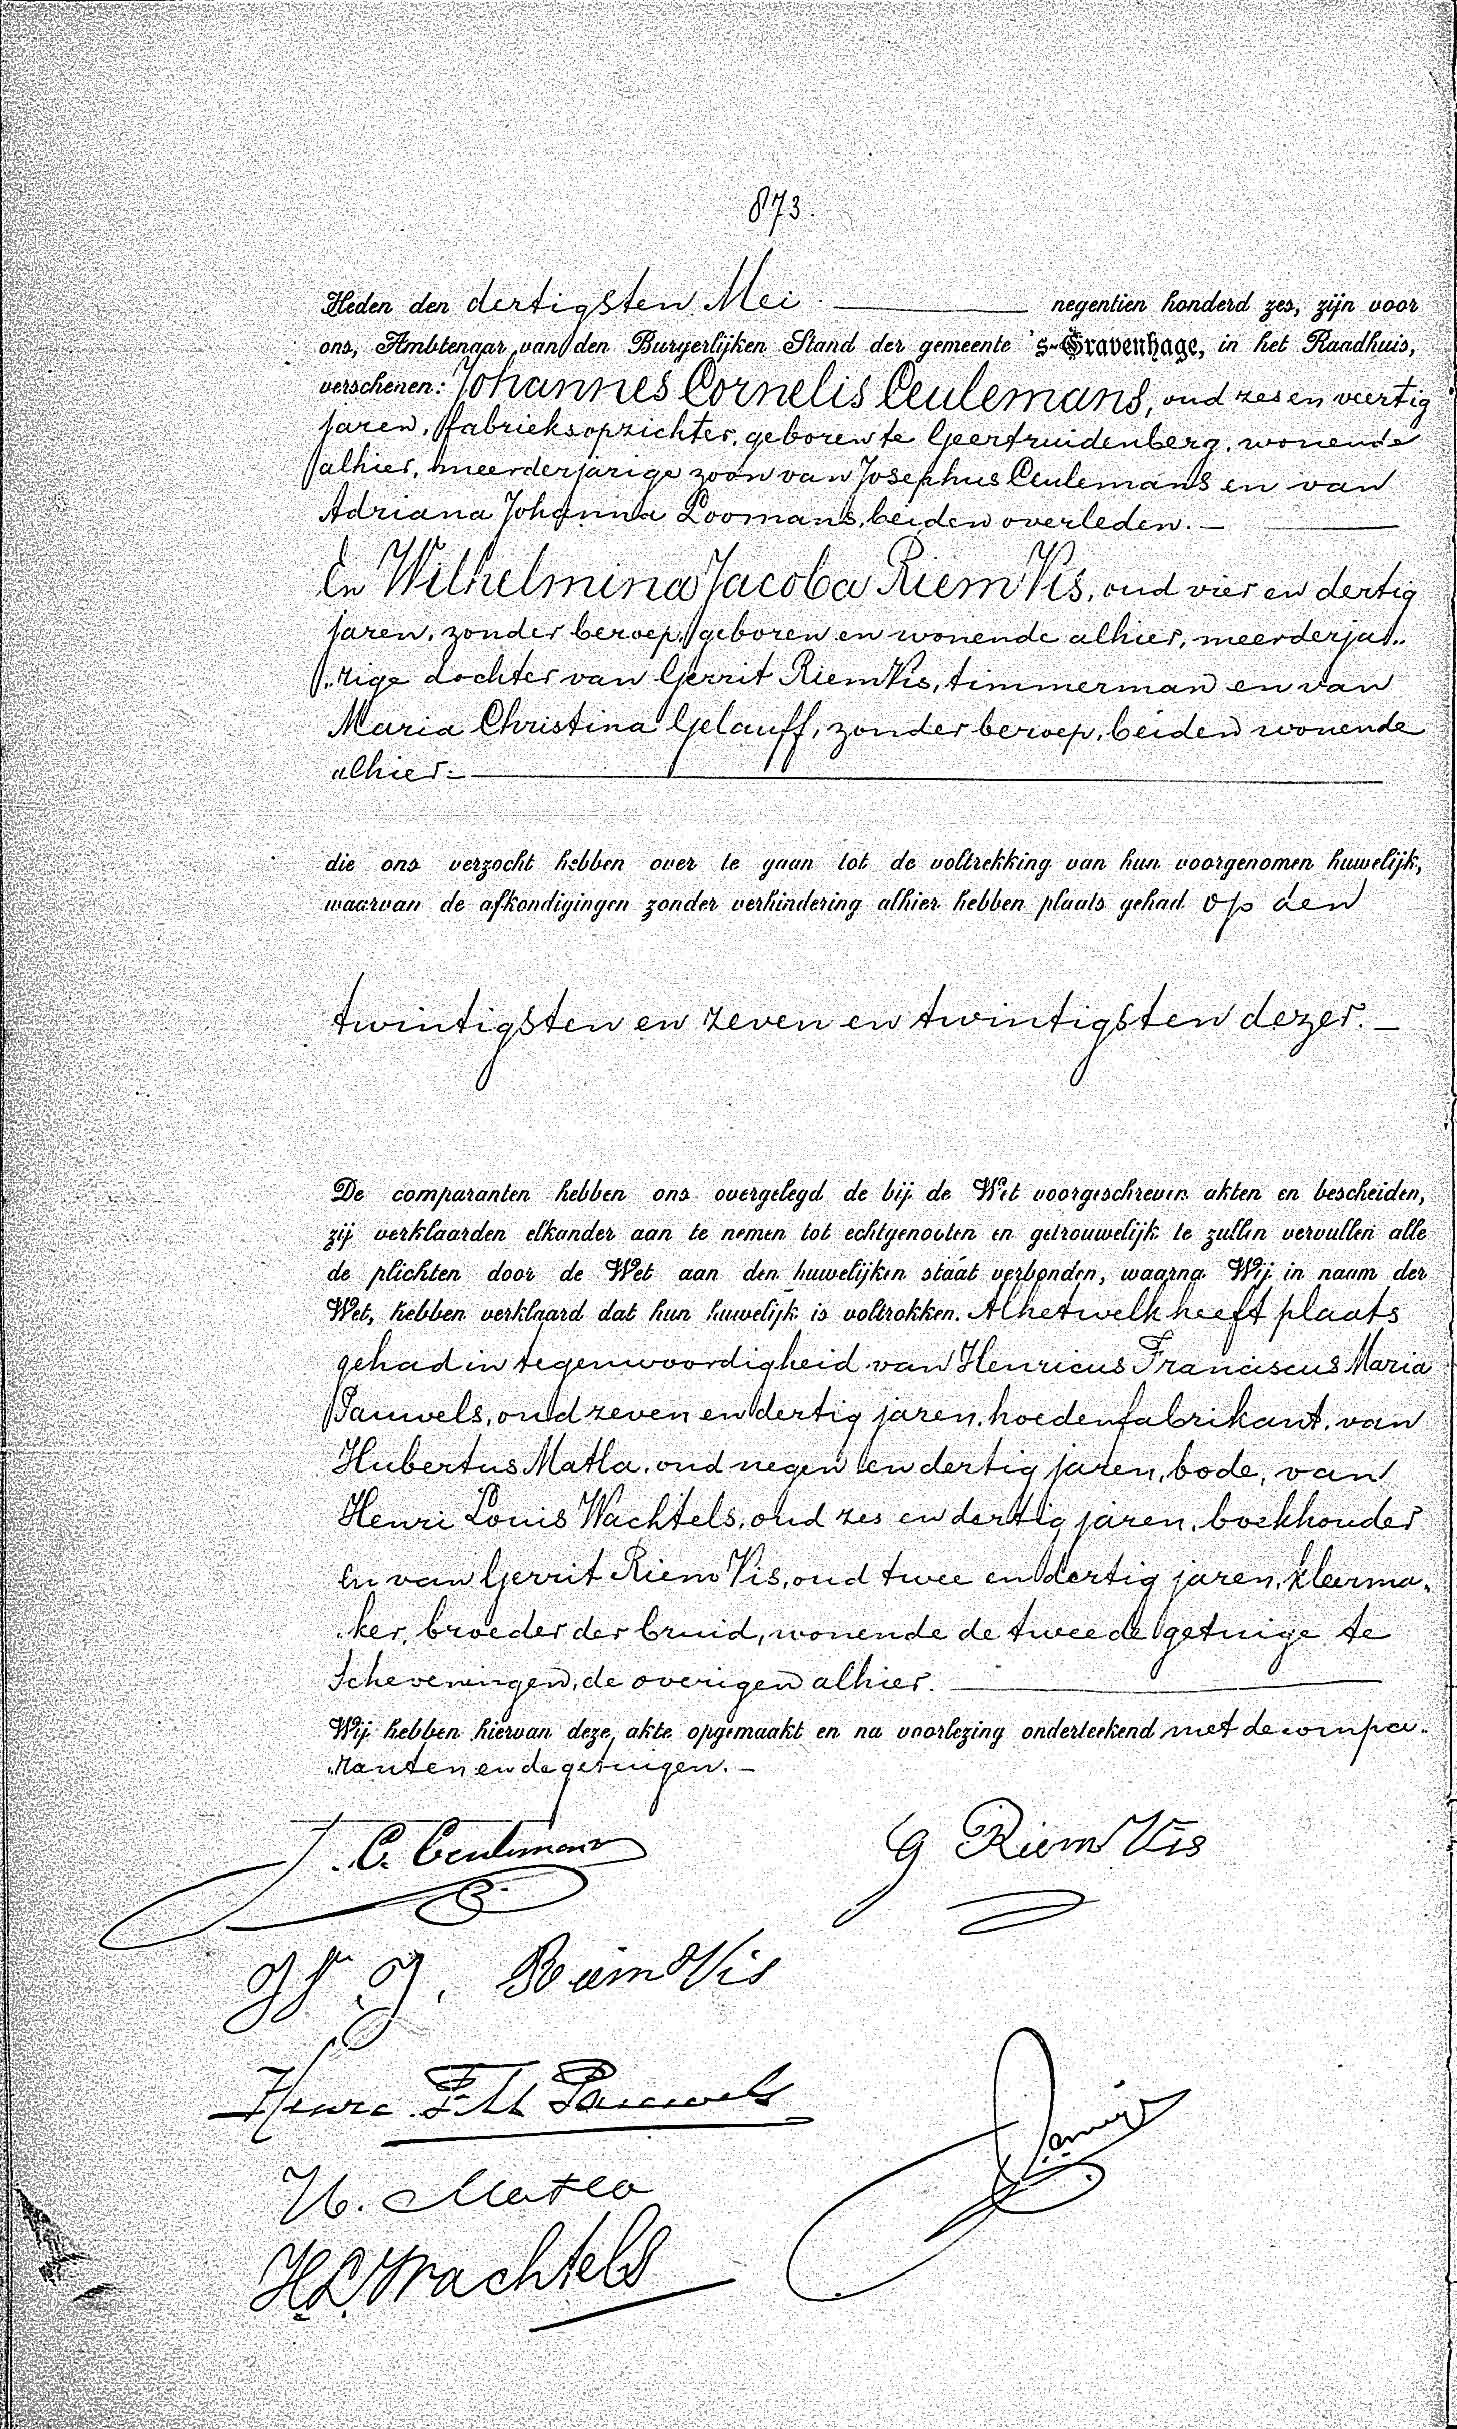 873.
Heden den dertigsten Mei negentien honderd zes, zijn voor
ons, Ambtenaar van den Burgerlijken Stand der gemeente 's-Gravenhage, in het Raadhuis,
verschenen: Johannes Cornelis Ceulemans, oud zes en veertig
jaren, fabrieksopzichter, geboren te Geertruidenberg, wonende
alhier, meerderjarige zoon van Josephus Ceulemans en van
Adriana Johanna Loomans, beiden overleden. —
En Wilhelmina Jacoba Riem Vis, oud vier en dertig
jaren, zonder beroep, geboren en wonende alhier, meerderja„
„rige dochter van Gerrit Riem Vis, timmerman en van
Maria Christina Gelauff, zonder beroep, beiden wonende
alhier. —
die ons verzocht hebben over te gaan tot de voltrekking van hun voorgenomen huwelijk,
waarvan de afkondigingen zonder verhindering alhier hebben plaats gehad op den
twintigsten en zeven en twintigsten dezer. —
De comparanten hebben ons overgelegd de bij de Wet voorgeschreven akten en bescheiden,
zij verklaarden elkander aan te nemen tot echtgenooten en getrouwelijk te zullen vervullen alle
de plichten door de Wet aan den huwelijken staat verbonden, waarna Wij in naam der
Wet, hebben verklaard dat hun huwelijk is voltrokken. Alhetwelk heeft plaats
gehad in tegenwoordigheid van Henricus Franciscus Maria
Pauwels, oud zeven en dertig jaren, hoedenfabrikant, van
Hubertus Matla, oud negen en dertig jaren, bode, van
Henri Louis Wachtels, oud zes en dertig jaren, boekhouder
en van Gerrit Riem Vis, oud twee en dertig jaren, kleerma„
„ker, broeder der bruid, wonende de tweede getuige te
Scheveningen, de overigen alhier.
Wij hebben hiervan deze akte opgemaakt en na voorlezing onderteekend met de compa„
„ranten en de getuigen. —
J. C. Ceulemans
G Riem Vis
W. J. Riem Vis
Henri F.M Pauwels
H. Matla
H.L. Wachtels